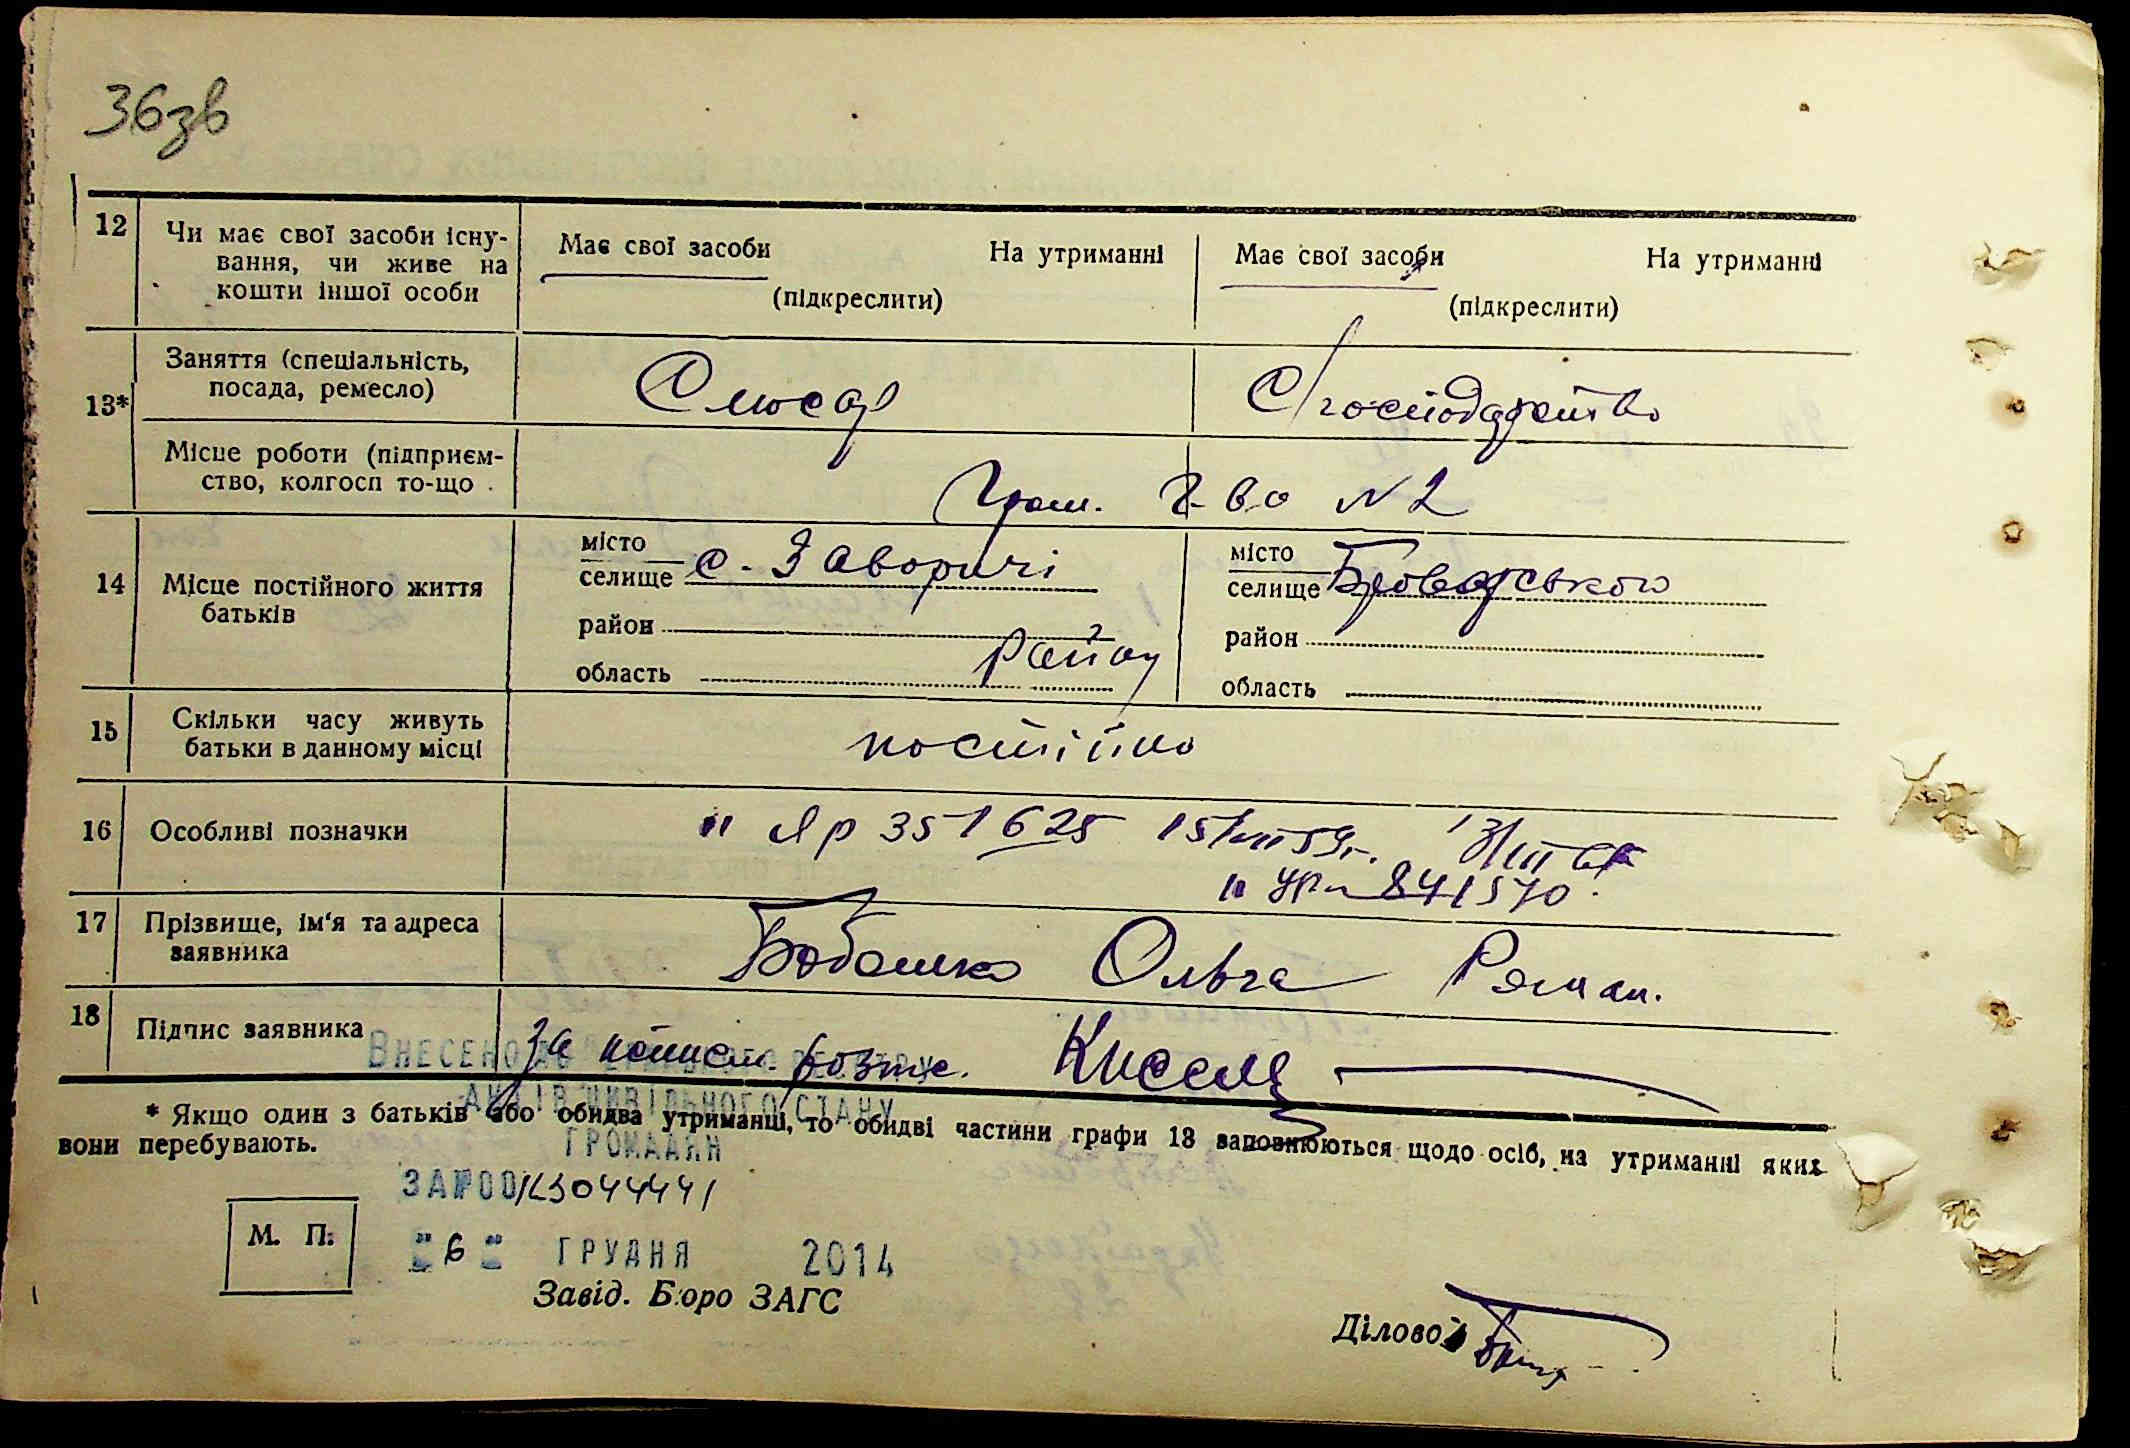 36зв
12 Чи має свої засоби існу-
вання, чи живе на
кошти іншої особи
Має свої засоби На утриманні
(підкреслити)
Має свої засоби На утриманні
(підкреслити)
13* Заняття (спеціальність,
посада, ремесло)
Слюсар
С/господарство
Місце роботи (підприєм-
ство, колгосп то-що
№ 2
14 Місце постійного життя
батьків
місто
селище с. Заворичі
район
область району
місто
селище Броварського
район
область
15 Скільки часу живуть
батьки в данному місці
постійно
16 Особливі позначки
" Яр 351625 15/VII 59г. 13/III
841570
17 Прізвище, ім'я та адреса
заявника
Бобошко Ольга Роман.
18 Підпис заявника
За
* Якщо один з батьків або обидва утриманці, то обидві частини графи 13 заповнюються щодо осіб, на утриманні яких
вони перебувають.
ВНЕСЕНО ДО ДЕРЖАВНОГО РЕЄСТРУ
АКТІВ ЦИВІЛЬНОГО СТАНУ
ГРОМАДЯН
ЗА №
"6" ГРУДНЯ 2014
М. П.
Завід. Бюро ЗАГС
Діловод